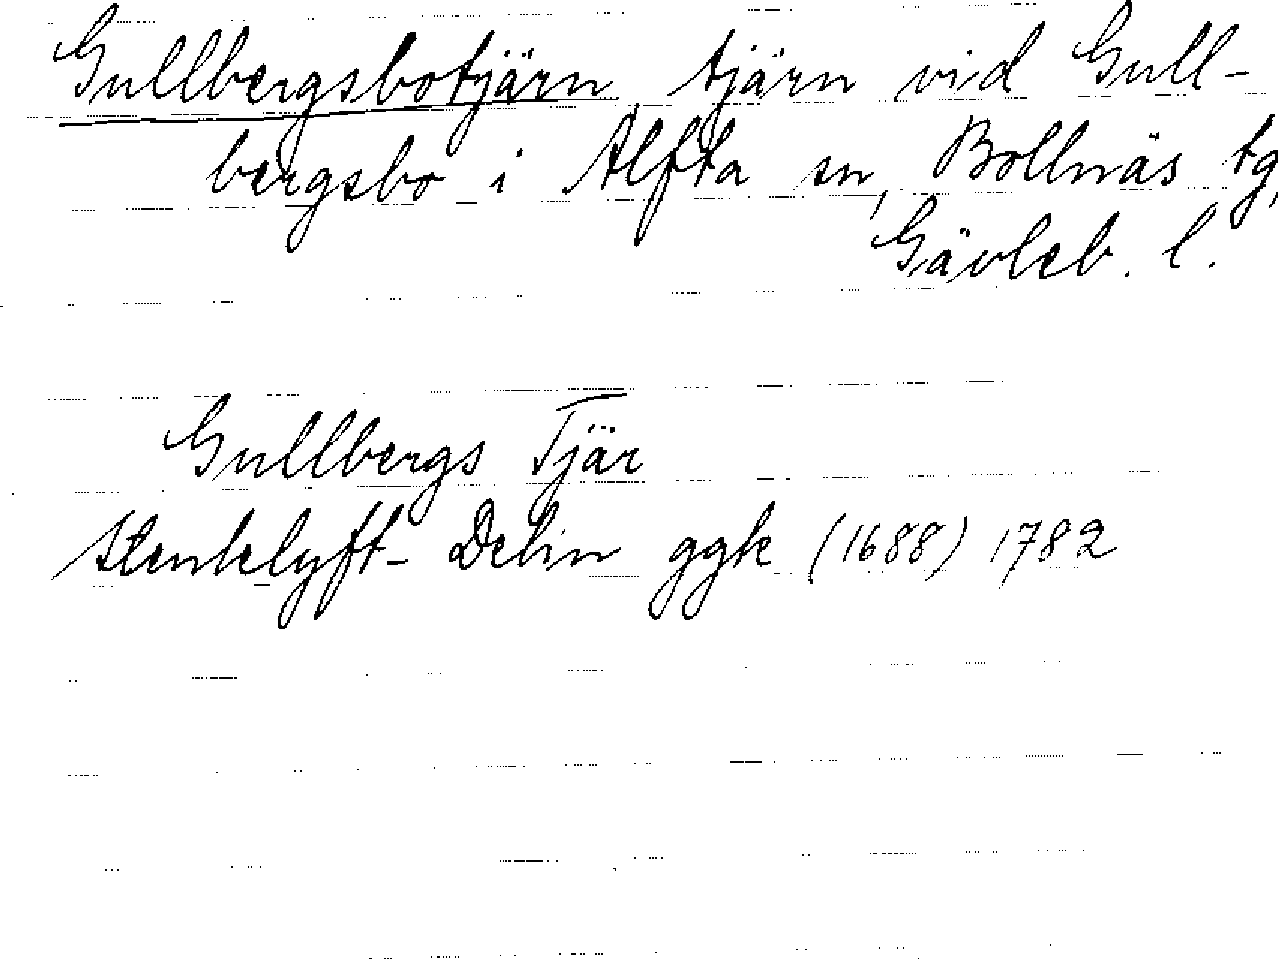 Gullbergsbotjärn, tjärn vid Gull-
bergsbo i Alfta sn, Bollnäs tg,
Gävleb. l.
Gullbergs Tjär
Stenklyft-Delin ggk (1688) 1782